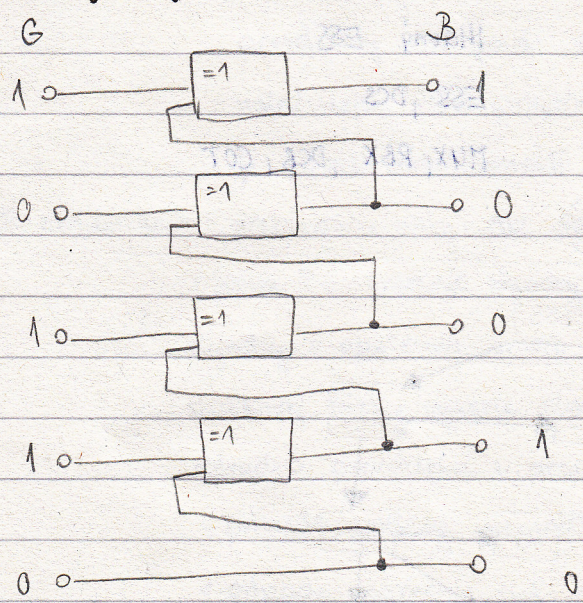 G B
1 =1 1
0 =1 0
1 =1 0
1 =1 1
0 0